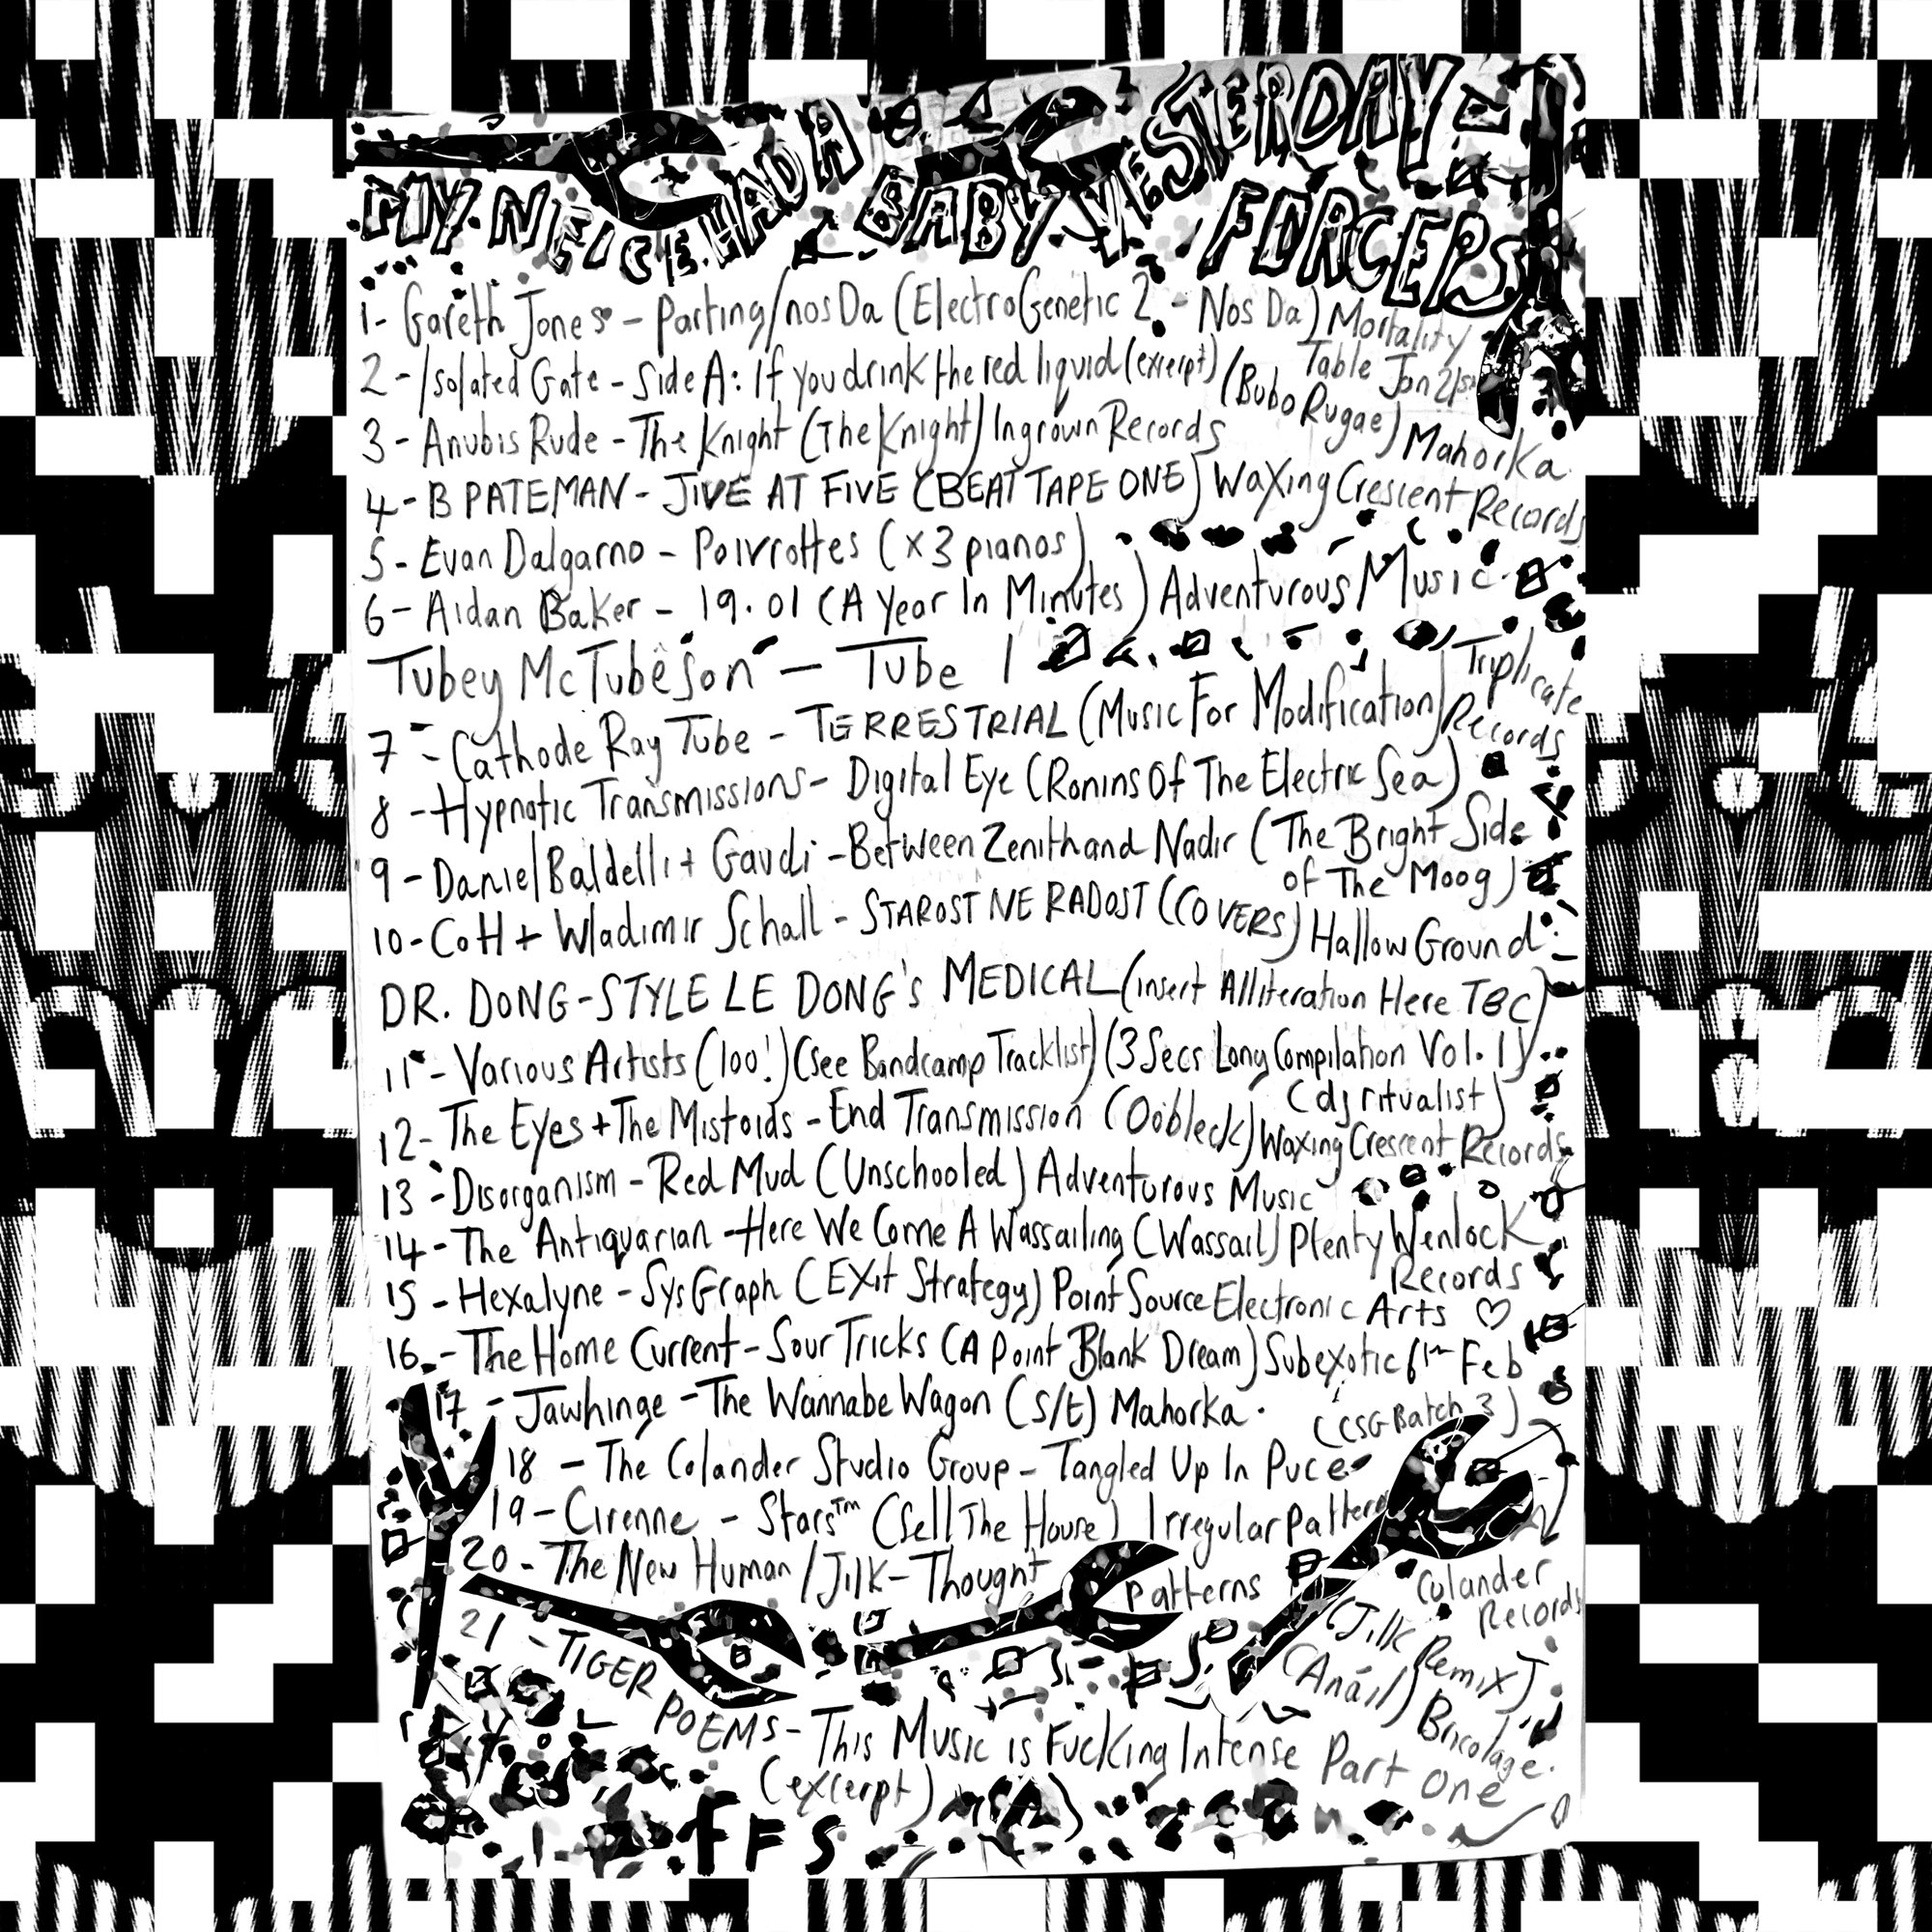 MY NEICE HAD A BABY YESTERDAY
FORCEPS
1- Gareth Jones - Parting/nos Da (ElectroGenetic 2 - Nos Da) Mortality Table Jan 21st
2- Isolated Gate - Side A: If you drink the red liquid (excerpt) (Bubo Rugae) Mahorka
3- Anubis Rude - The Knight (The Knight) Ingrown Records
4- B PATEMAN - JIVE AT FIVE (BEAT TAPE ONE) Waxing Crescent Records
5- Evan Dalgarno - Poivrottes (x3 pianos)
6- Aidan Baker - 19.01 (A Year In Minutes) Adventurous Music
Tubey McTubeson - Tube 1
7- Cathode Ray Tube - TERRESTRIAL (Music For Modification) Triplicate Records
8- Hypnotic Transmissions - Digital Eye (Ronins Of The Electric Sea)
9- Daniel Baldelli + Gaudi - Between Zenith and Nadir (The Bright Side
of The Moog)
10- CoH + Wladimir Schall - STAROST NE RADOST (COVERS) Hallow Ground
DR. DONG-STYLE LE DONG's MEDICAL (insert Alliteration Here TBC)
11- Various Artists (100!) (See Bandcamp Tracklist) (3 Secs Long Compilation Vol. 1)
(dj ritualist)
12- The Eyes + The Mistoids - End Transmission (Oobleck) Waxing Crescent Records
13- Disorganism - Red Mud (Unschooled) Adventurous Music
14- The Antiquarian - Here We Come A Wassailing (Wassail) Plenty Wenlock
Records
15- Hexalyne - SysGraph (EXit Strategy) Point Source Electronic Arts ♡
16- The Home Current - Sour Tricks (A Point Blank Dream) Subexotic 6th Feb
17- Jawhinge - The Wannabe Wagon (s/t) Mahorka.
18- The Colander Studio Group - Tangled Up In Puce (CSG Batch 3)
Colander
Records
19- Cirenne - Stars™ (Sell The House) Irregular Patterns
20- The New Human/Jilk - Thought Patterns
(Jilk Remix)
(Anáil) Bricolage.
21- TIGER POEMS - This Music is Fucking Intense Part One
(excerpt)
FFS